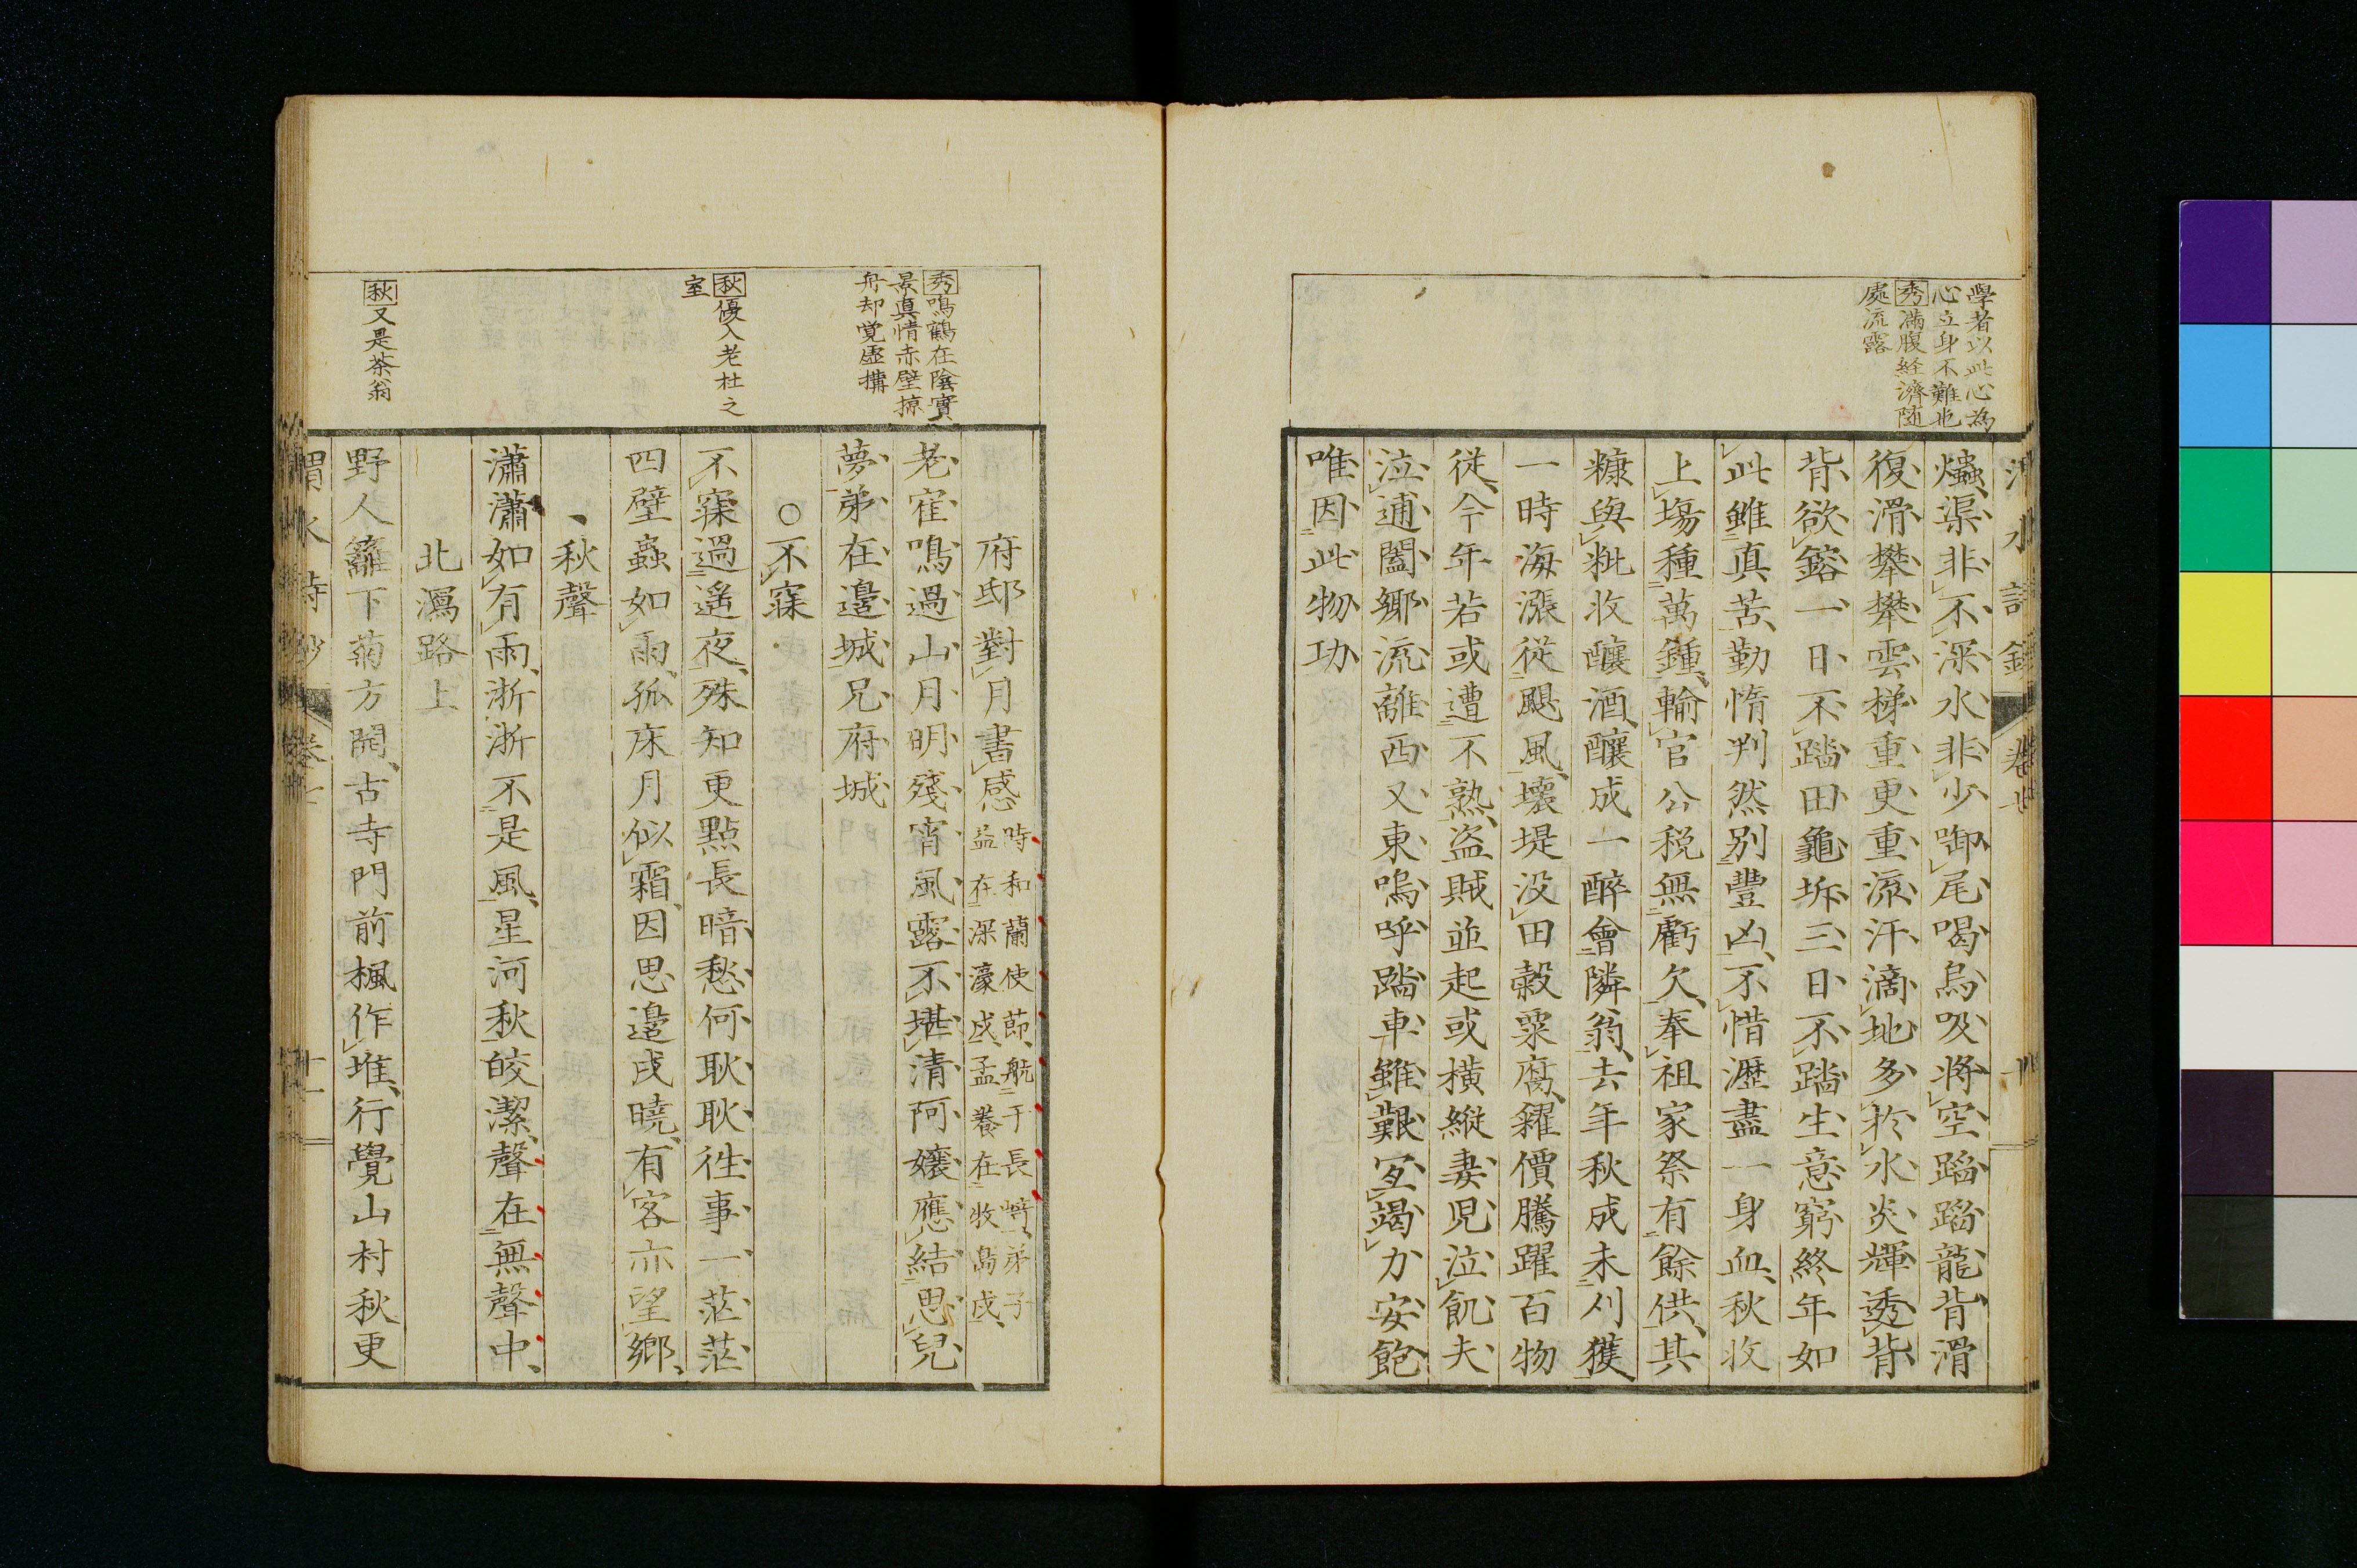 學者以此心為
心立身不難也
秀滿腹経濟随
處流露
爞渠非不深水非少啣尾喝烏吸將空蹈蹈龍背滑
復滑攀攀雲梯重更重流汗滴地多於水炎輝透背
背欲鎔一日不踏田龜坼三日不踏生意窮終年如
此雖真苦勤惰判然別豐凶不惜瀝盡一身血秋收
上塲種萬鍾輸官公税無虧欠奉祖家祭有餘供其
糠與粃收釀酒釀成一醉會隣翁去年秋成未刈獲
一時海漲從颶風壞堤没田穀粟腐糴價騰躍百物
從今年若或遭不熟盗賊並起或橫縱妻児泣飢夫
泣逋闔鄉流離西又東嗚呼踏車雖艱宜竭力安飽
唯因此物功
秀鳴鶴在陰實
景真情赤壁掠
舟却覚虚搆
秋優入老杜之
室
秋又是茶翁
府邸對月書感 時和蘭使節航于長崎弟子
益在深濠戍孟養在牧島戍
老寉鳴過山月明殘宵風露不堪清阿孃應結思兒
夢弟在邉城兄府城
○不寐
不寐過遙夜殊知更點長暗愁何耿耿徃事一茫茫
四壁蟲如雨孤床月似霜因思邉戍曉有客亦望鄉
秋聲
瀟瀟如有雨淅淅不是風星河秋皎潔聲在無聲中
北潟路上
野人籬下菊方開古寺門前楓作堆行覺山村秋更
卷七
十一